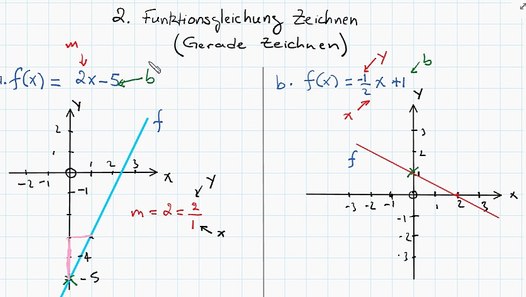 2. Funktionsgleichung Zeichnen
(Gerade Zeichnen)
m
a. f(x) = 2x-5 ← b
y
2
1
f
-2 -1 1 2 3 x
-1
-4
-5
m = 2 = 2/1
y
x
b. f(x) = -1/2 x + 1
y
b
x
y
3
2
1
f
-3 -2 -1 0 1 2 3 x
-1
-2
-3